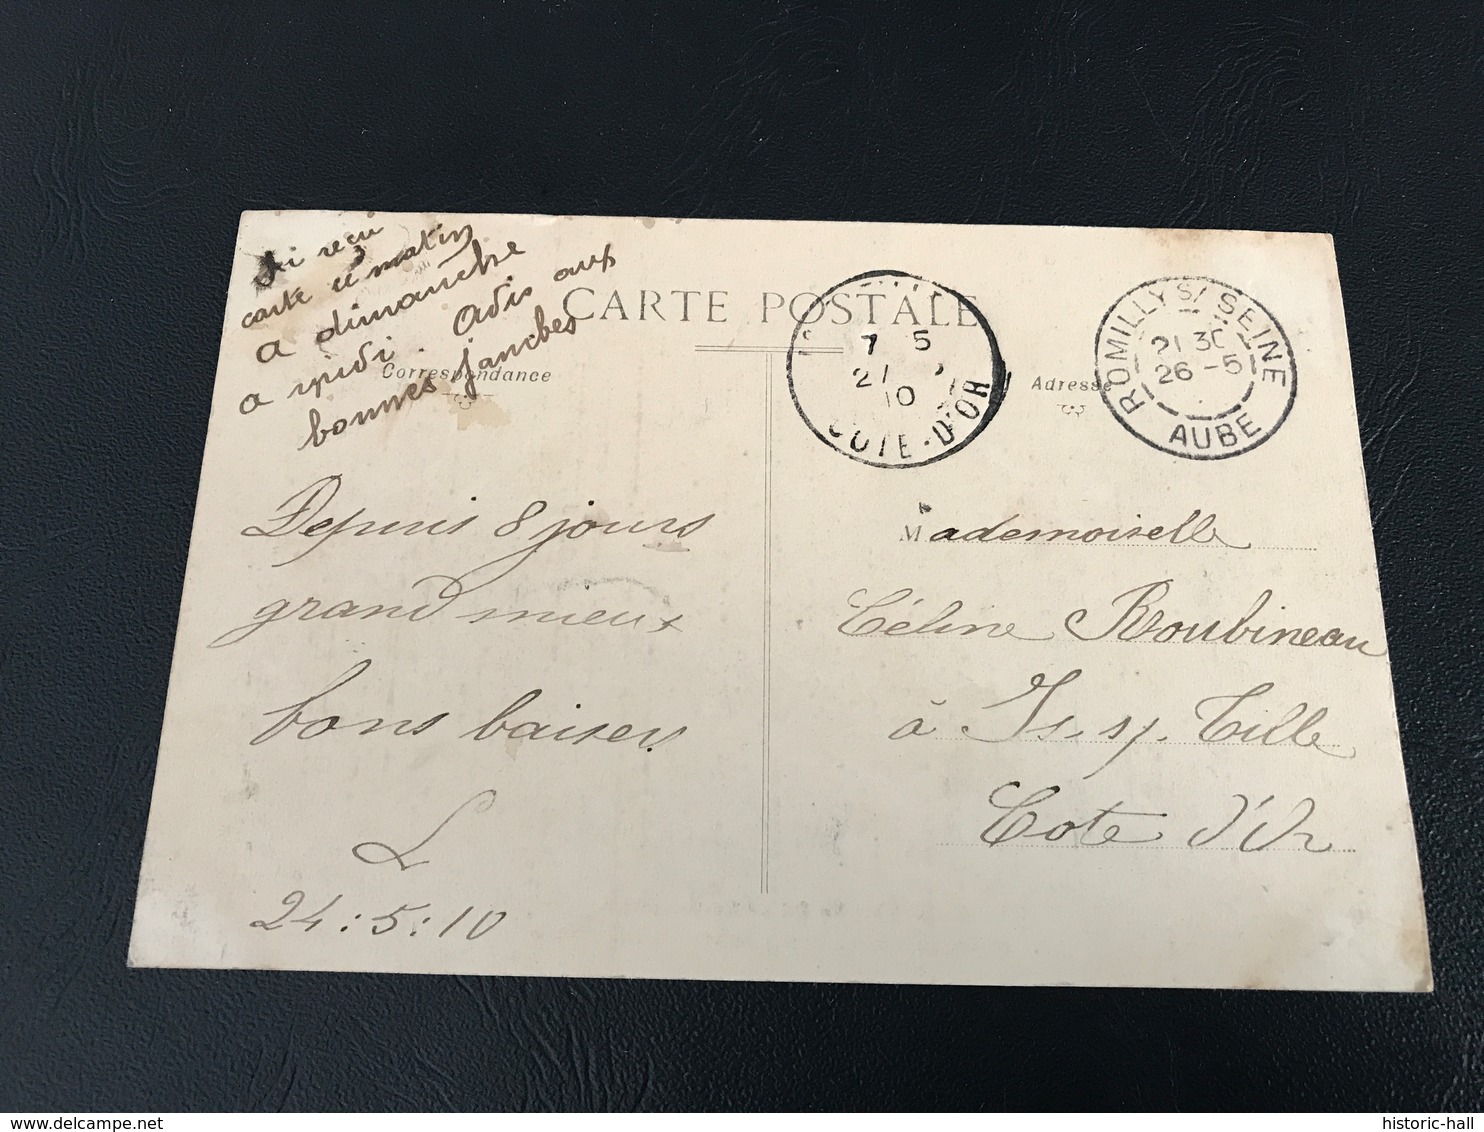 ai reçu
carte ce matin
a dimanche
a midi. Adis aux
bonnes fanches
CARTE POSTALE
Correspondance
Adresse
7 5
21
10
COTE-D'OR
ROMILLY S/ SEINE
21 30
26 -5
AUBE
Depuis 8 jours
grand mieux
bons baisers
L
24:5:10
Mademoiselle
Céline Roubineau
à Is. s/. Tille
Cote d'Or
historic-hall